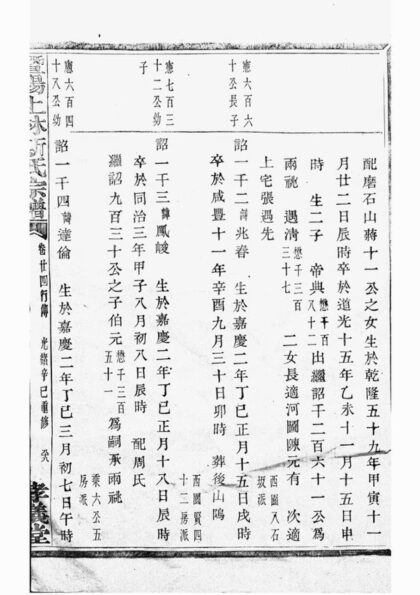 配磨石山蔣十一公之女生於乾隆五十九年甲寅十一
月廿二日辰時卒於道光十五年乙未十一月十五日申
時 生二子 帝典懋千三百八十二出繼詔千二百六十一公爲
兩祧 遇清懋千三百三十七 二女長適河圖陳元有 次適
上宅張遇先
西園八石
坂派
憲六百六
十公長子
詔一千二諱兆春 生於嘉慶二年丁巳正月十五日戌時
卒於咸豐十一年辛酉九月三十日卯時 葬後山塢
西園賢四
十二房派
憲七百三
十二公幼
子
詔一千三諱鳳峻 生於嘉慶二年丁巳正月十八日辰時
卒於同治三年甲子八月初八日辰時 配周氏
繼詔九百三十公之子伯元懋千三百五十一爲嗣承兩祧
六公五
房派
憲六百四
十八公幼
詔一千四諱達倫 生於嘉慶二年丁巳三月初七日午時
暨陽上林斯氏宗譜 卷廿四行傳 光緒辛巳重修 癸 孝義堂